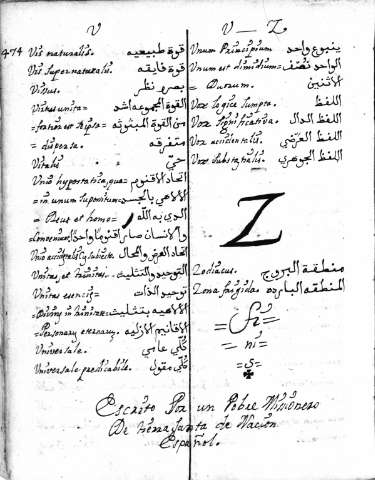 V
474 Vis naturalis. قوة طبيعيه
Vis supernaturalis. قوة فايقه
Visus. بصر، نظر
Virtus unita= القوة المجموعه اشد
=fortior est من القوة المبثوثه
=dispersa. متفرقه
Vitalis حيّ
Unio hypostatica, qua= اتحاد الاقنوم
=in unum suppositum= الالاهي بالجسد
=Deus et homo= الدي به الله
والانسان صار اقنوما واحدا
اتحاد العرض والمحال
Unitas, et trinitas. التوحيد والتثليث
Unitas essenciæ= توحيد الذات
=Divinæ in trinitate= الالاهيه بتثليث
=Personarum eternarum. الاقانيم الازليه
Universale. كُلّي عامي
Universale predicabile. كُلّي مقول
V — Z
Unum Principium ينبوع واحد
Unum et dimidium= الواحد نُصف
=Duorum. الاثنين
Vox logice sumpta. اللفظ
Vox significativa. اللفظ الدال
Vox accidentalis. اللفظ العرَضي
Vox substatialis. اللفظ الجوهري
Z
Zodiacus. منطقة البروج
Zona frigida. المنطقه البارده
=fi=
=ni=
=s=
Escrito Por un Pobre Misionero
De tierra santa de Nacion
Español.